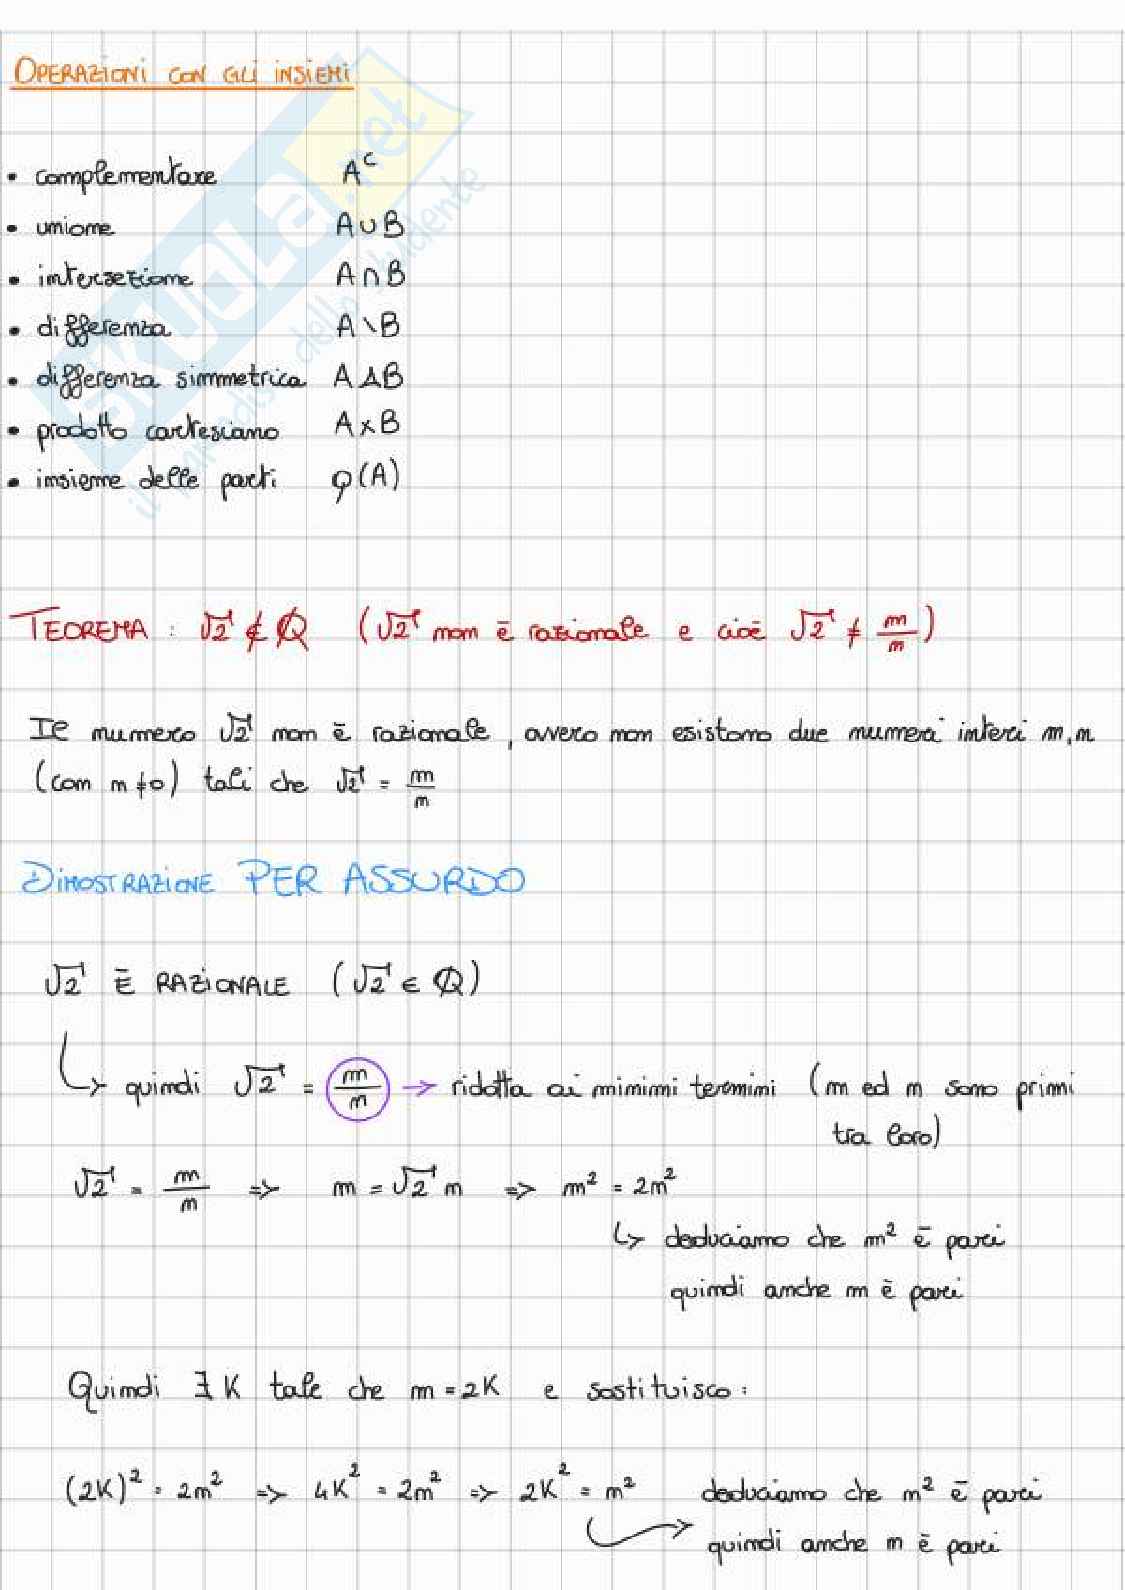 OPERAZIONI CON GLI INSIEMI
• complementare A^C
• unione A∪B
• intersezione A∩B
• differenza A\B
• differenza simmetrica A△B
• prodotto cartesiano A×B
• insieme delle parti ℘(A)
SKUOLA.net
il paradiso dello studente
TEOREMA: √2 ∉ ℚ (√2 non è razionale e cioè √2 ≠ m/n)
Il numero √2 non è razionale, ovvero non esistono due numeri interi m,n
(con n≠0) tali che √2 = m/n
DIMOSTRAZIONE PER ASSURDO
√2 È RAZIONALE (√2 ∈ ℚ)
↳ quindi √2 = m/n → ridotta ai minimi termini (m ed n sono primi
tra loro)
√2 = m/n => m = √2 n => m² = 2n²
↳ deduciamo che m² è pari
quindi anche m è pari
Quindi ∃ K tale che m = 2K e sostituisco:
(2K)² = 2n² => 4K² = 2n² => 2K² = n² deduciamo che n² è pari
→ quindi anche n è pari